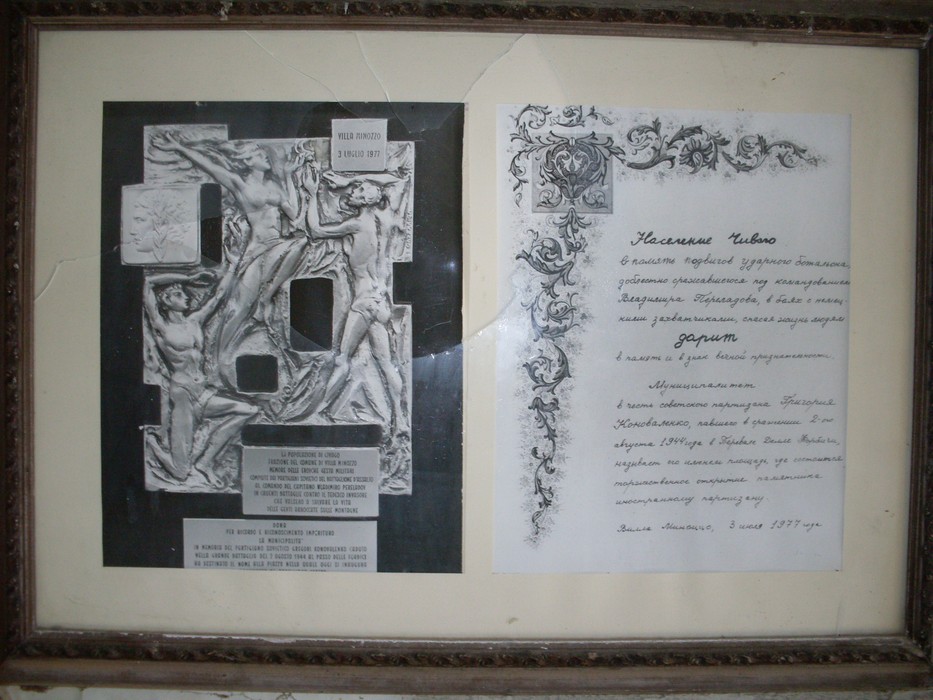 VILLA MINOZZO
3 LUGLIO 1977
LA POPOLAZIONE DI CIVAGO
FRAZIONE DEL COMUNE DI VILLA MINOZZO
MEMORE DELLE EROICHE GESTA MILITARI
COMPIUTE DAI PARTIGIANI SOVIETICI DEL BATTAGLIONE D'ASSALTO
AL COMANDO DEL CAPITANO
IN CRUENTE BATTAGLIE CONTRO IL TEDESCO INVASORE
CHE VALSERO A SALVARE LA VITA
DELLE GENTI ARROCCATE SULLE MONTAGNE
DONA
PER RICORDO E RICONOSCIMENTO IMPERITURO
LA MUNICIPALITA'
IN MEMORIA DEL PARTIGIANO SOVIETICO GREGORI KONOVALENKO CADUTO
NELLA GRANDE BATTAGLIA DEL 2 AGOSTO 1944 AL PASSO DELLE FORBICI
HA DESTINATO IL NOME ALLA PIAZZA NELLA QUALE OGGI SI INAUGURA
Население Чиваго
в память подвигов ударного батальона,
доблестно сражавшегося под командованием
Владимира Переладова, в боях с немец-
кими захватчиками, спасая жизнь людям
дарит
в память и в знак вечной признательности.
Муниципалитет
в честь советского партизана Григория
Коноваленко, павшего в сражении 2-го
августа 1944 года в Перевале Делле Форбичи,
называет его именем площадь, где состоится
торжественное открытие памятника
иностранному партизану.
Вилла Миноццо, 3 июля 1977 года